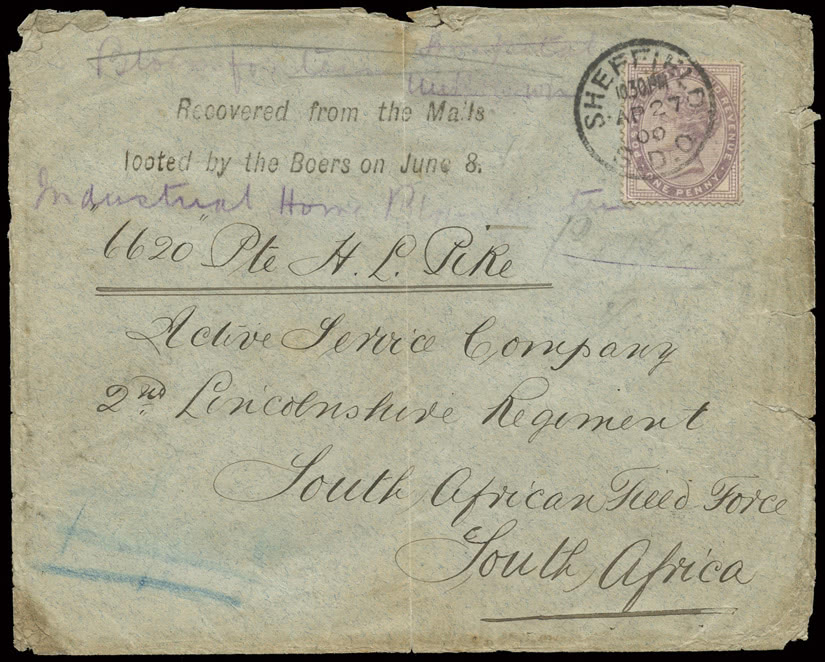 Bloemfontein Hospital
Unknown
SHEFFIELD
10.30PM
AP 27
00
D.O
REVENUE
ONE PENNY
Recovered from the Mails
looted by the Boers on June 8.
Industrial Home Bloemfontein
"6620" Pte H. L. Pike
Active Service Company
2nd Lincolnshire Regiment
South African Field Force
South Africa